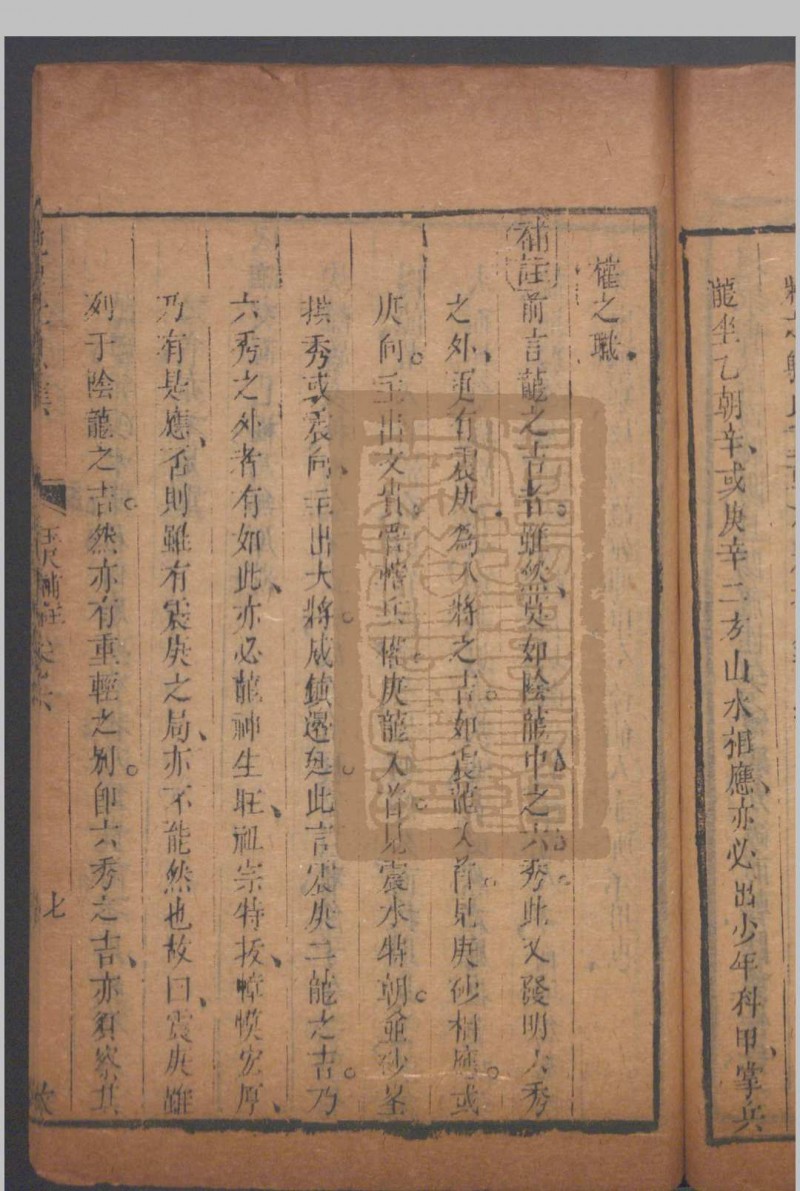 龍坐乙朝辛、或庚辛二方山水相應、亦必出少年科甲、掌兵
權之職
補註前言龍之吉者、雖然莫如陰龍中之六秀、此又發明六秀
之外、更有震庚為入將之吉、如震龍入首、見庚砂相應、或
庚向主出文貴、兵權庚龍入首見震水特朝重砂
拱秀或震向、主出大將威鎮邊廷此言震庚二龍之吉乃
六秀之外者有如此、亦必龍神生旺、祖宗特拔、幛幙宏厚、
乃有是應、否則雖有震庚之局、亦不能然也故曰、震庚雖
列于陰龍之吉然亦有重輕之别即六秀之吉、亦須察其
七